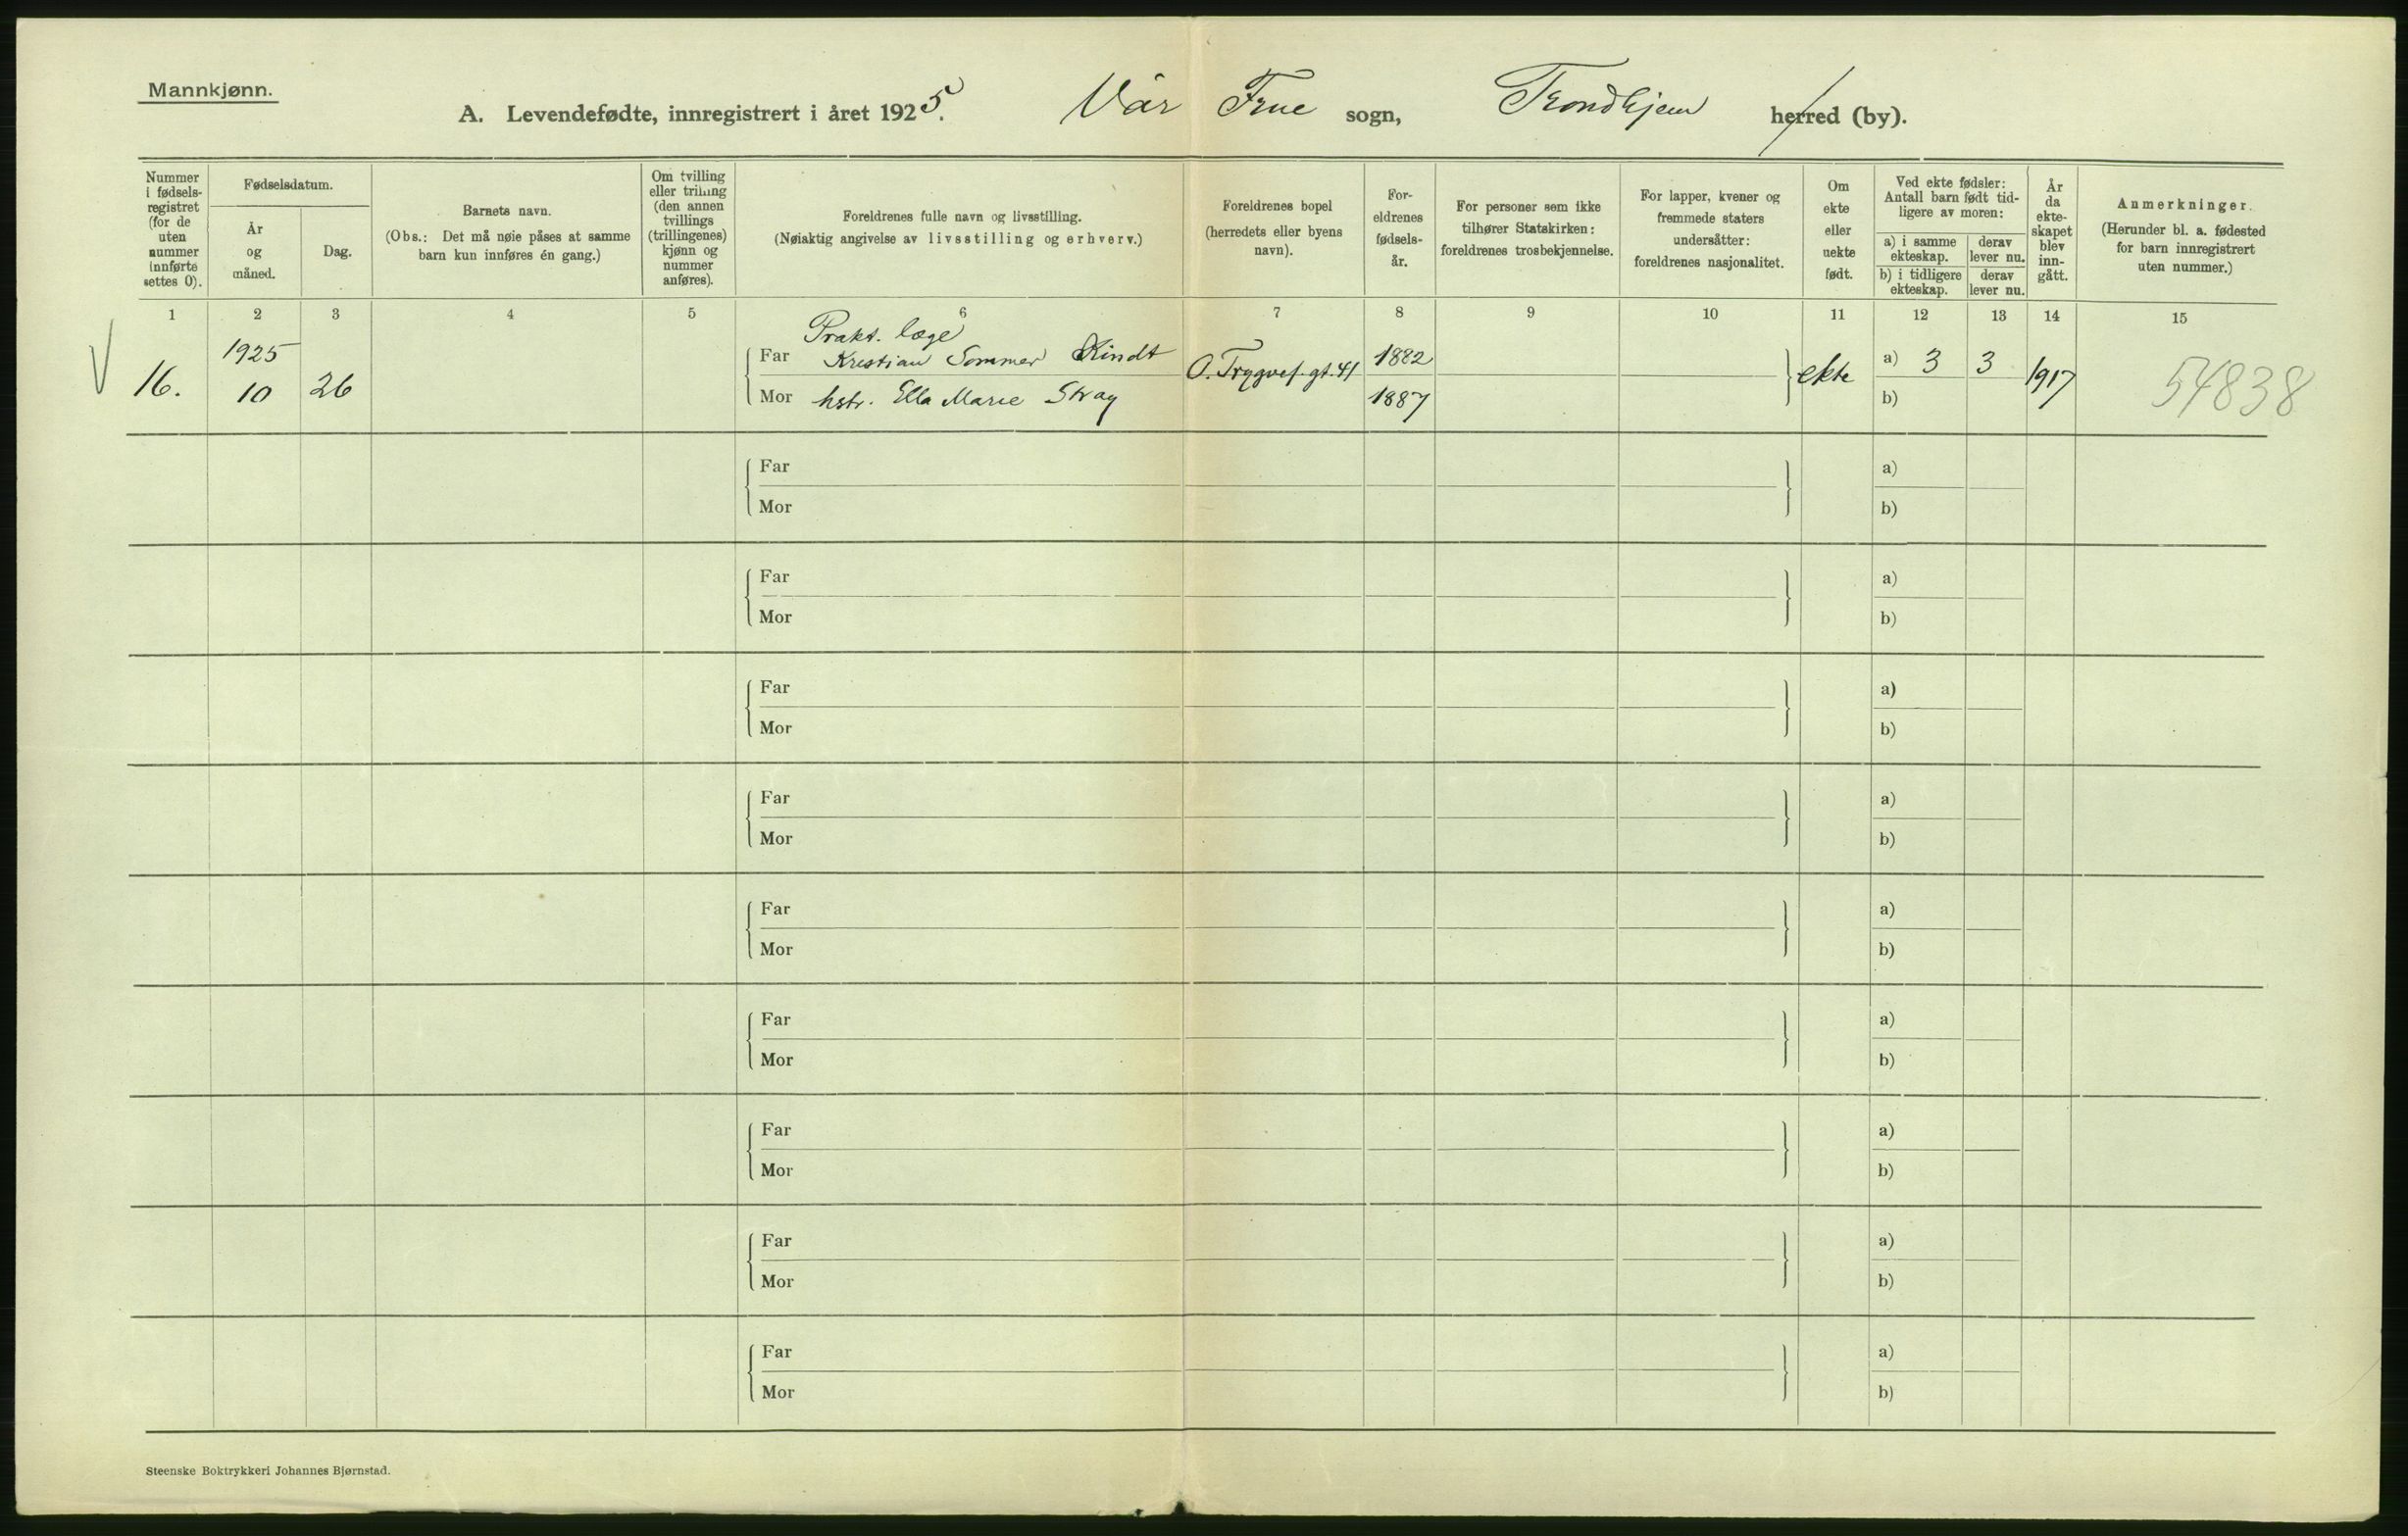 Mannkjønn.
A. Levendefødte, innregistrert i året 1925. Vår Frue sogn, Trondhjem herred (by).
Nummer i fødsels-registret (for de uten nummer innførte settes 0).
Fødselsdatum.
År og måned.
Dag.
Barnets navn.
(Obs.: Det må nøie påses at samme barn kun innføres én gang.)
Om tvilling eller trilling (den annen tvillings (trillingenes) kjønn og nummer anføres).
Foreldrenes fulle navn og livsstilling.
(Nøiaktig angivelse av livsstilling og erhverv.)
Foreldrenes bopel (herredets eller byens navn).
For-eldrenes fødsels-år.
For personer som ikke tilhører Statskirken: foreldrenes trosbekjennelse.
For lapper, kvener og fremmede staters undersåtter: foreldrenes nasjonalitet.
Om ekte eller uekte født.
Ved ekte fødsler: Antall barn født tid-ligere av moren:
a) i samme ekteskap.
derav lever nu.
b) i tidligere ekteskap.
derav lever nu.
År da ekte-skapet blev inn-gått.
Anmerkninger.
(Herunder bl. a. fødested for barn innregistrert uten nummer.)
1 2 3 4 5 6 7 8 9 10 11 12 13 14 15
V 16. 1925 10 26
Prakt. læge
Far Kristian Sommer Kindt
Mor hstr. Ella Marie Stray
O. Trygves. gt. 41
1882
1887
ekte
a) 3 3
b)
1917
54838
Far a)
Mor b)
Far a)
Mor b)
Far a)
Mor b)
Far a)
Mor b)
Far a)
Mor b)
Far a)
Mor b)
Far a)
Mor b)
Far a)
Mor b)
Far a)
Mor b)
Steenske Boktrykkeri Johannes Bjørnstad.